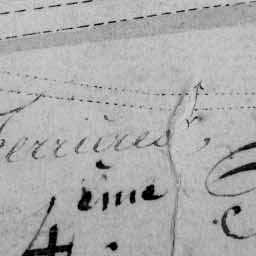 Ferrières,
4.ème